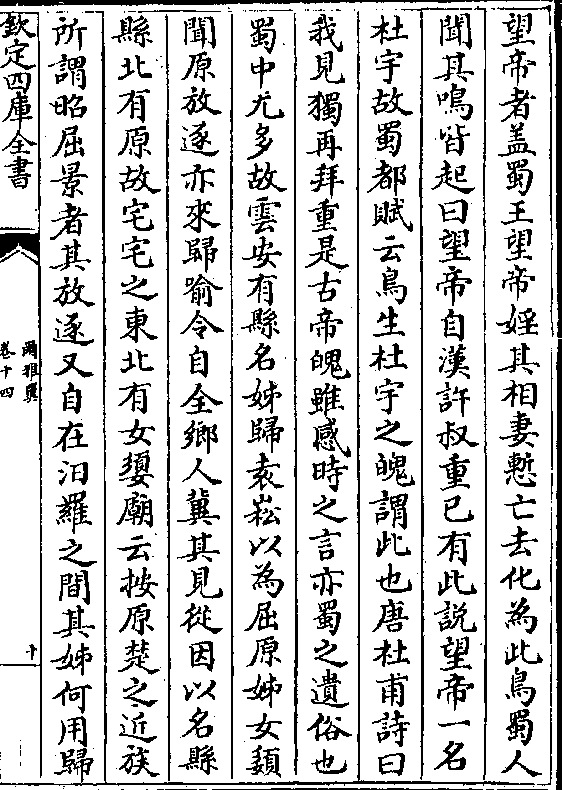 望帝者盖蜀王望帝婬其相妻慙亡去化為此鳥蜀人
聞其鳴皆起曰望帝自漢許叔重已有此説望帝一名
杜宇故蜀都賦云鳥生杜宇之魄謂此也唐杜甫詩曰
我見獨再拜重是古帝魄雖感時之言亦蜀之遺俗也
蜀中尤多故雲安有縣名姊歸袁崧以為屈原姊女嬃
聞原放逐亦來歸喻令自全鄉人冀其見從因以名縣
縣北有原故宅宅之東北有女嬃廟云按原楚之近族
所謂昭屈景者其放逐又自在汨羅之間其姊何用歸
欽定四庫全書
爾雅翼
卷十四
十